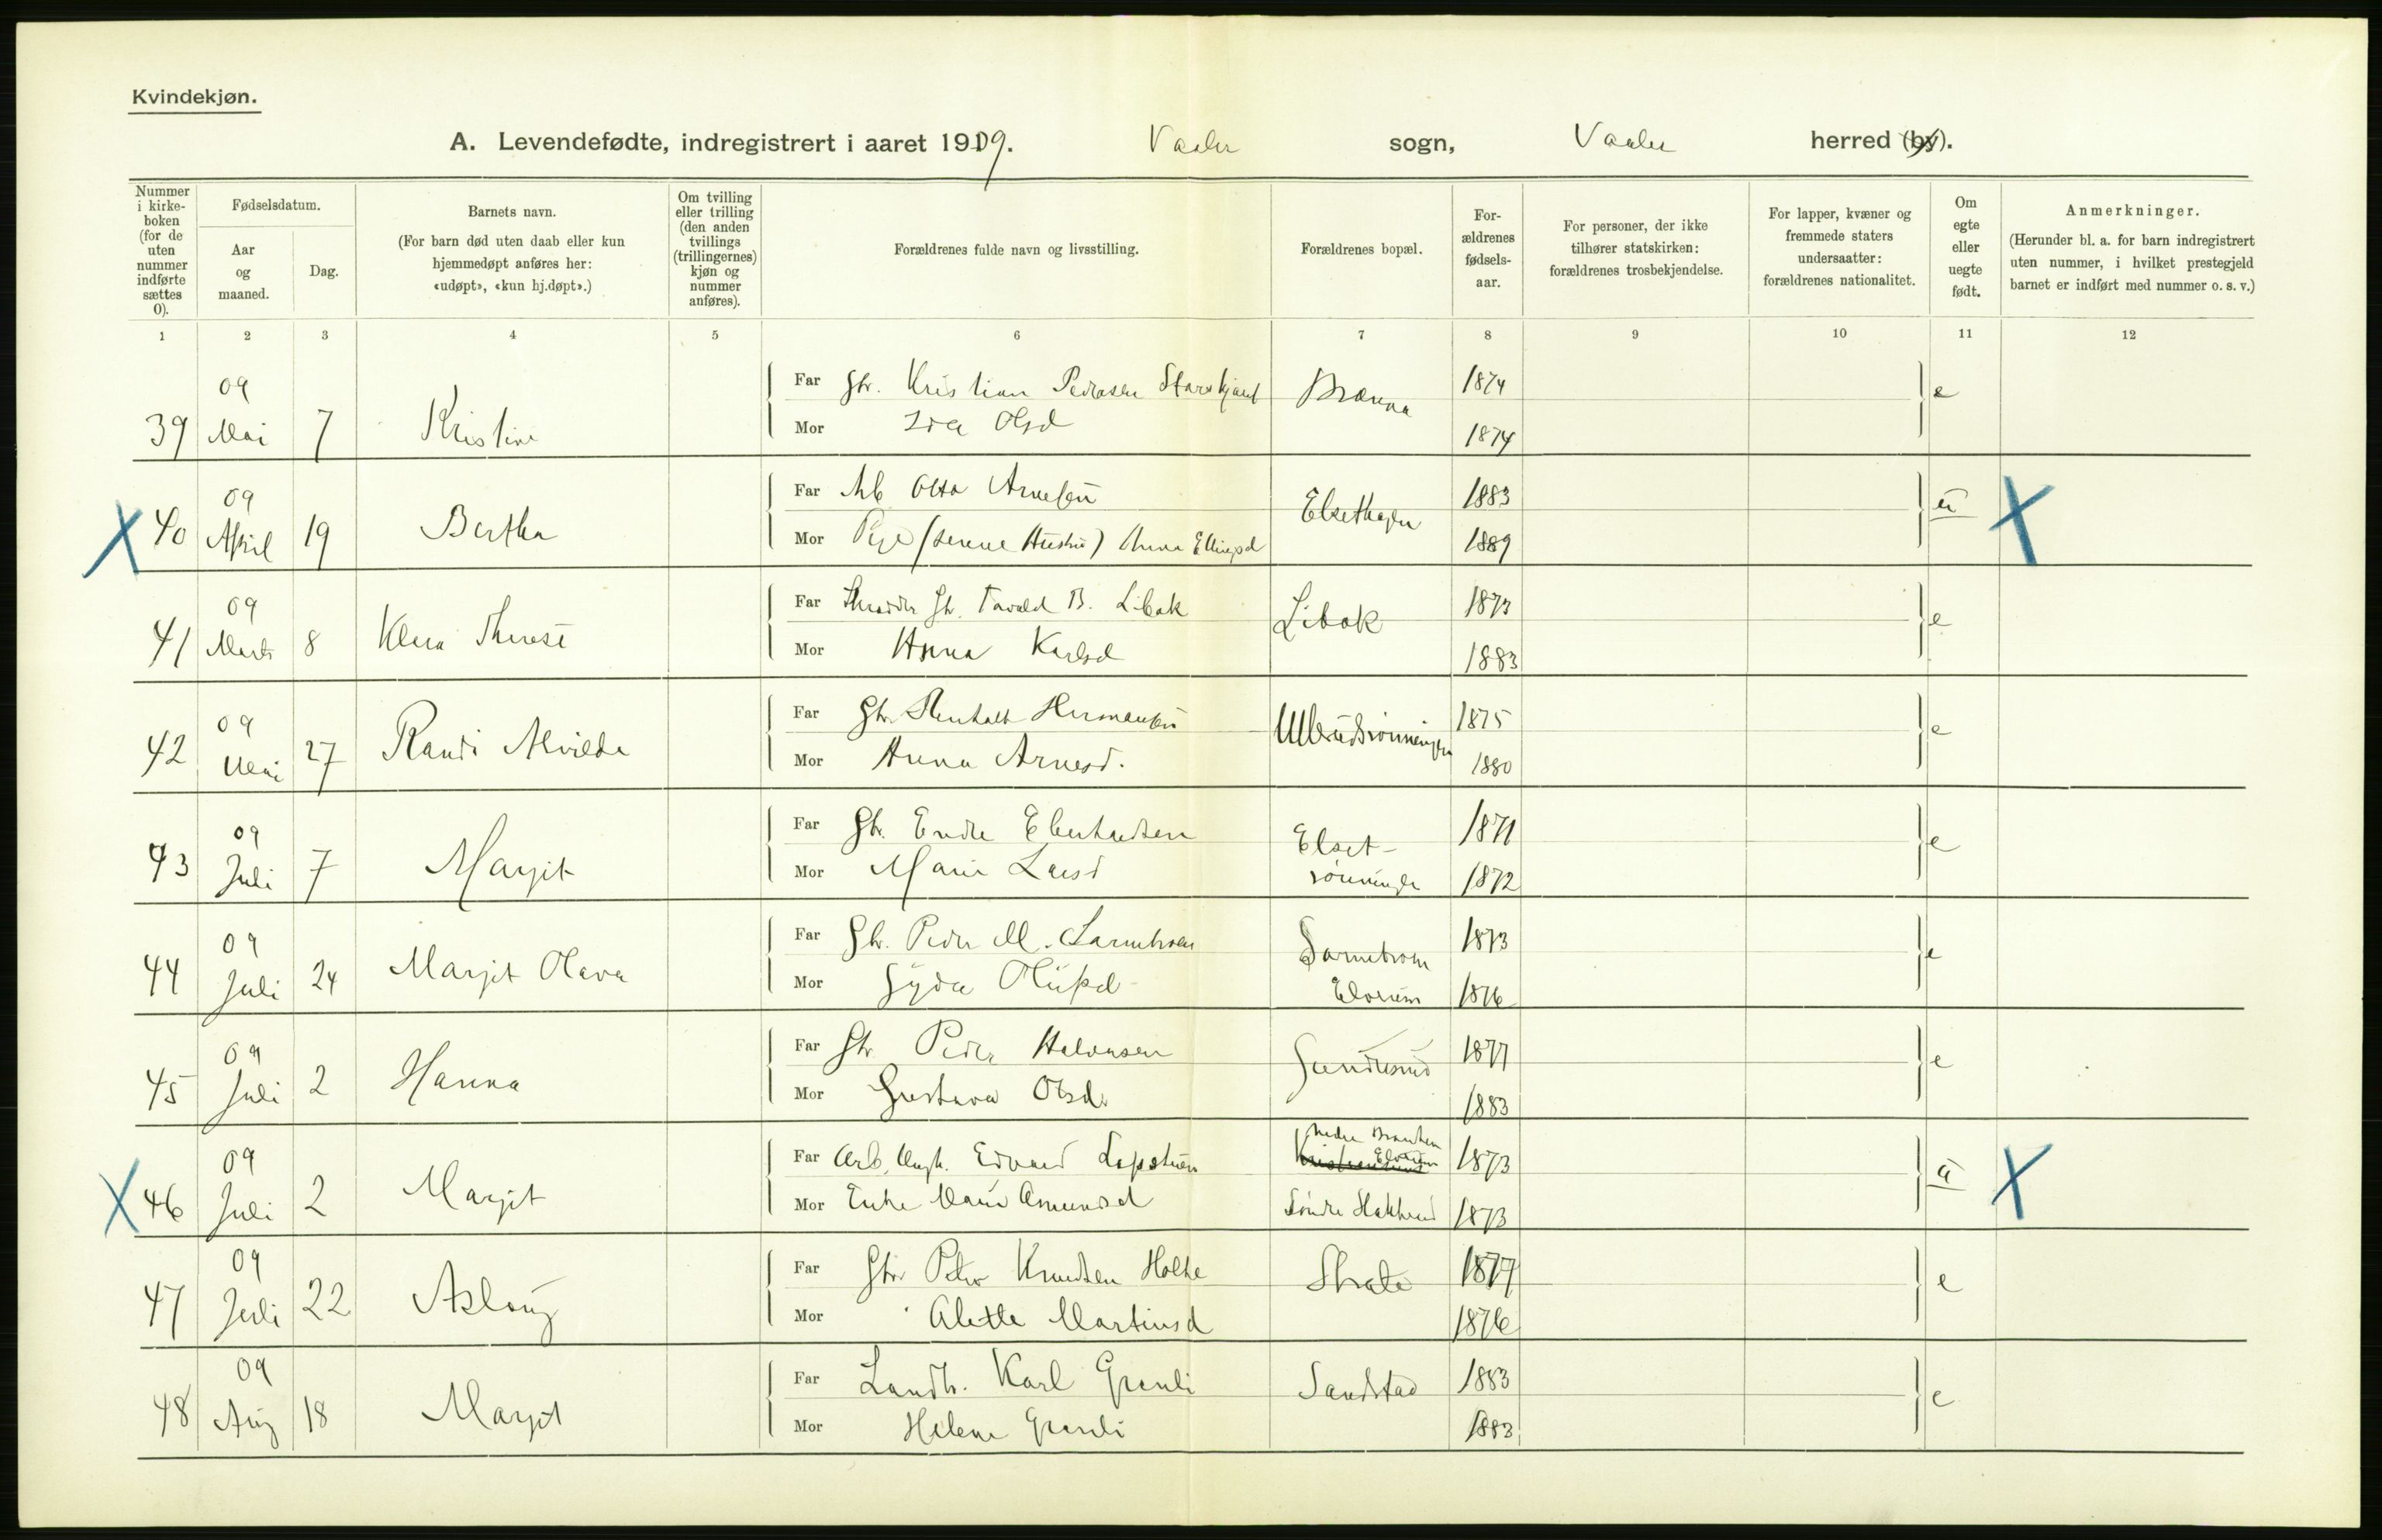 Kvindekjøn.
A. Levendefødte, indregistrert i aaret 1909. Vaaler sogn, Vaaler herred (by).
Nummer i kirke-boken (for de uten nummer indførte sættes 0).
Fødselsdatum.
Aar og maaned.
Dag.
Barnets navn.
(For barn død uten daab eller kun hjemmedøpt anføres her: «udøpt», «kun hj.døpt».)
Om tvilling eller trilling (den anden tvillings (trillingernes) kjøn og nummer anføres).
Forældrenes fulde navn og livsstilling.
Forældrenes bopæl.
For-ældrenes fødsels-aar.
For personer, der ikke tilhører statskirken: forældrenes trosbekjendelse.
For lapper, kvæner og fremmede staters undersaatter: forældrenes nationalitet.
Om egte eller uegte født.
Anmerkninger.
(Herunder bl. a. for barn indregistrert uten nummer, i hvilket prestegjeld barnet er indført med nummer o. s. v.)
1 2 3 4 5 6 7 8 9 10 11 12
39 09 Mai 7 Kristine Far Gbr. Kristian Pedersen Brænna 1874 e
Mor Ida Olsd 1874
X 40 09 April 19 Bertha Far Arb Otto Arnesen Elsethagen 1883 u X
Mor Pige Anna Ellingsd 1889
41 09 Marts 8 Klara Therese Far Gbr. B. Libak Libak 1873 e
Mor Anna Karlsd 1883
42 09 Mai 27 Randi Alvilde Far Gbr. Hermansen 1875 e
Mor Anna Arnesd. 1880
43 09 Juli 7 Margit Far Gbr. Endre Eberhardsen Elset- 1871 e
Mor Marie Larsd rønningen 1872
44 09 Juli 24 Margit Olava Far Gbr. Peder M. e 1873
Mor Gyda Olufsd Elverum 1876
45 09 Juli 2 Hanna Far Gbr Peder Halvorsen 1877 e
Mor Gustava Olsd. 1883
X 46 09 Juli 2 Margit Far Arb. Ungk. Edvard Nedre Elverum 1873 u X
Mor Enke Marie Amundsd Søndre 1873
47 09 Juli 22 Aslaug Far Gbr Peter Knudsen Holte 1877 e
Mor Alette Martinsd 1876
48 09 Aug 18 Margit Far Landh. Karl Grenli Sandstad 1883 e
Mor Helene Grenli 1883